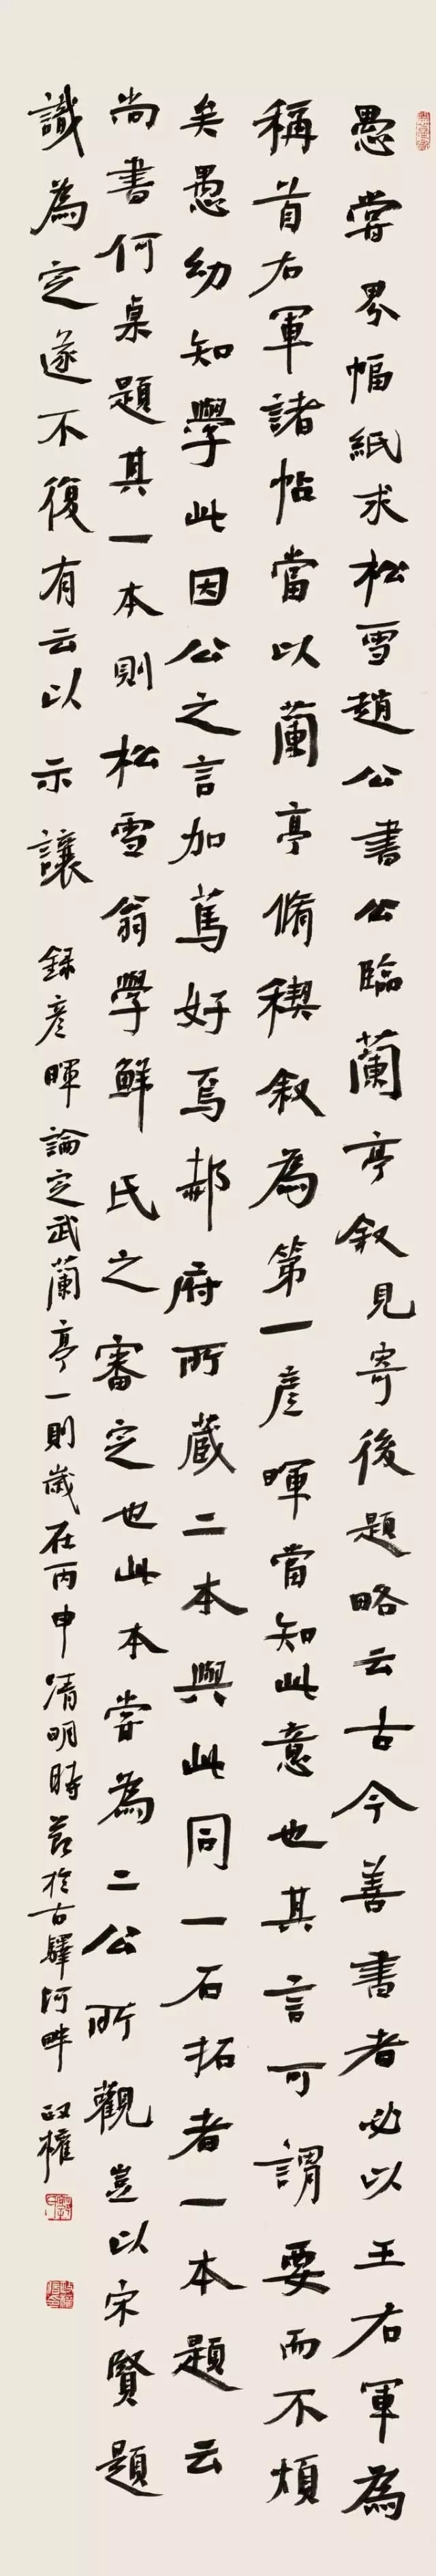 愚嘗畀幅紙求松雪趙公書公臨蘭亭叙見寄後題略云古今善書者必以王右軍為
稱首右軍諸帖當以蘭亭脩稧叙為第一彦暉當知此意也其言可謂要而不煩
矣愚幼知學此因公之言加篤好焉郝府所蔵二本與此同一石拓者一本題云
尚書何桌題其一本則松雪翁學鮮氏之審定也此本嘗為二公所觀豈以宋賢題
識為定遂不復有云以示讓
録彦暉論定武蘭亭一則歲在丙申清明時節於古驛河畔政權